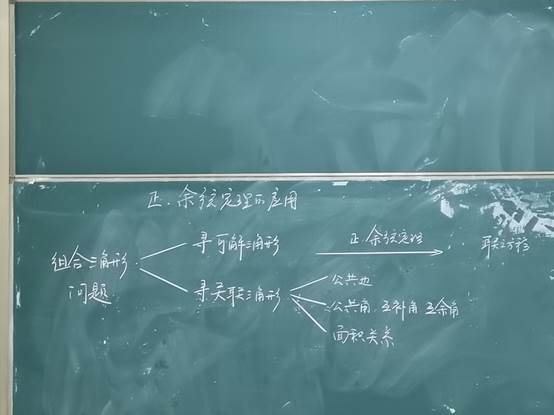 正、余弦定理的应用
组合三角形
问题
寻可解三角形
正、余弦定理
联立方程
寻关联三角形
公共边
公共角、互补角 互余角
面积关系